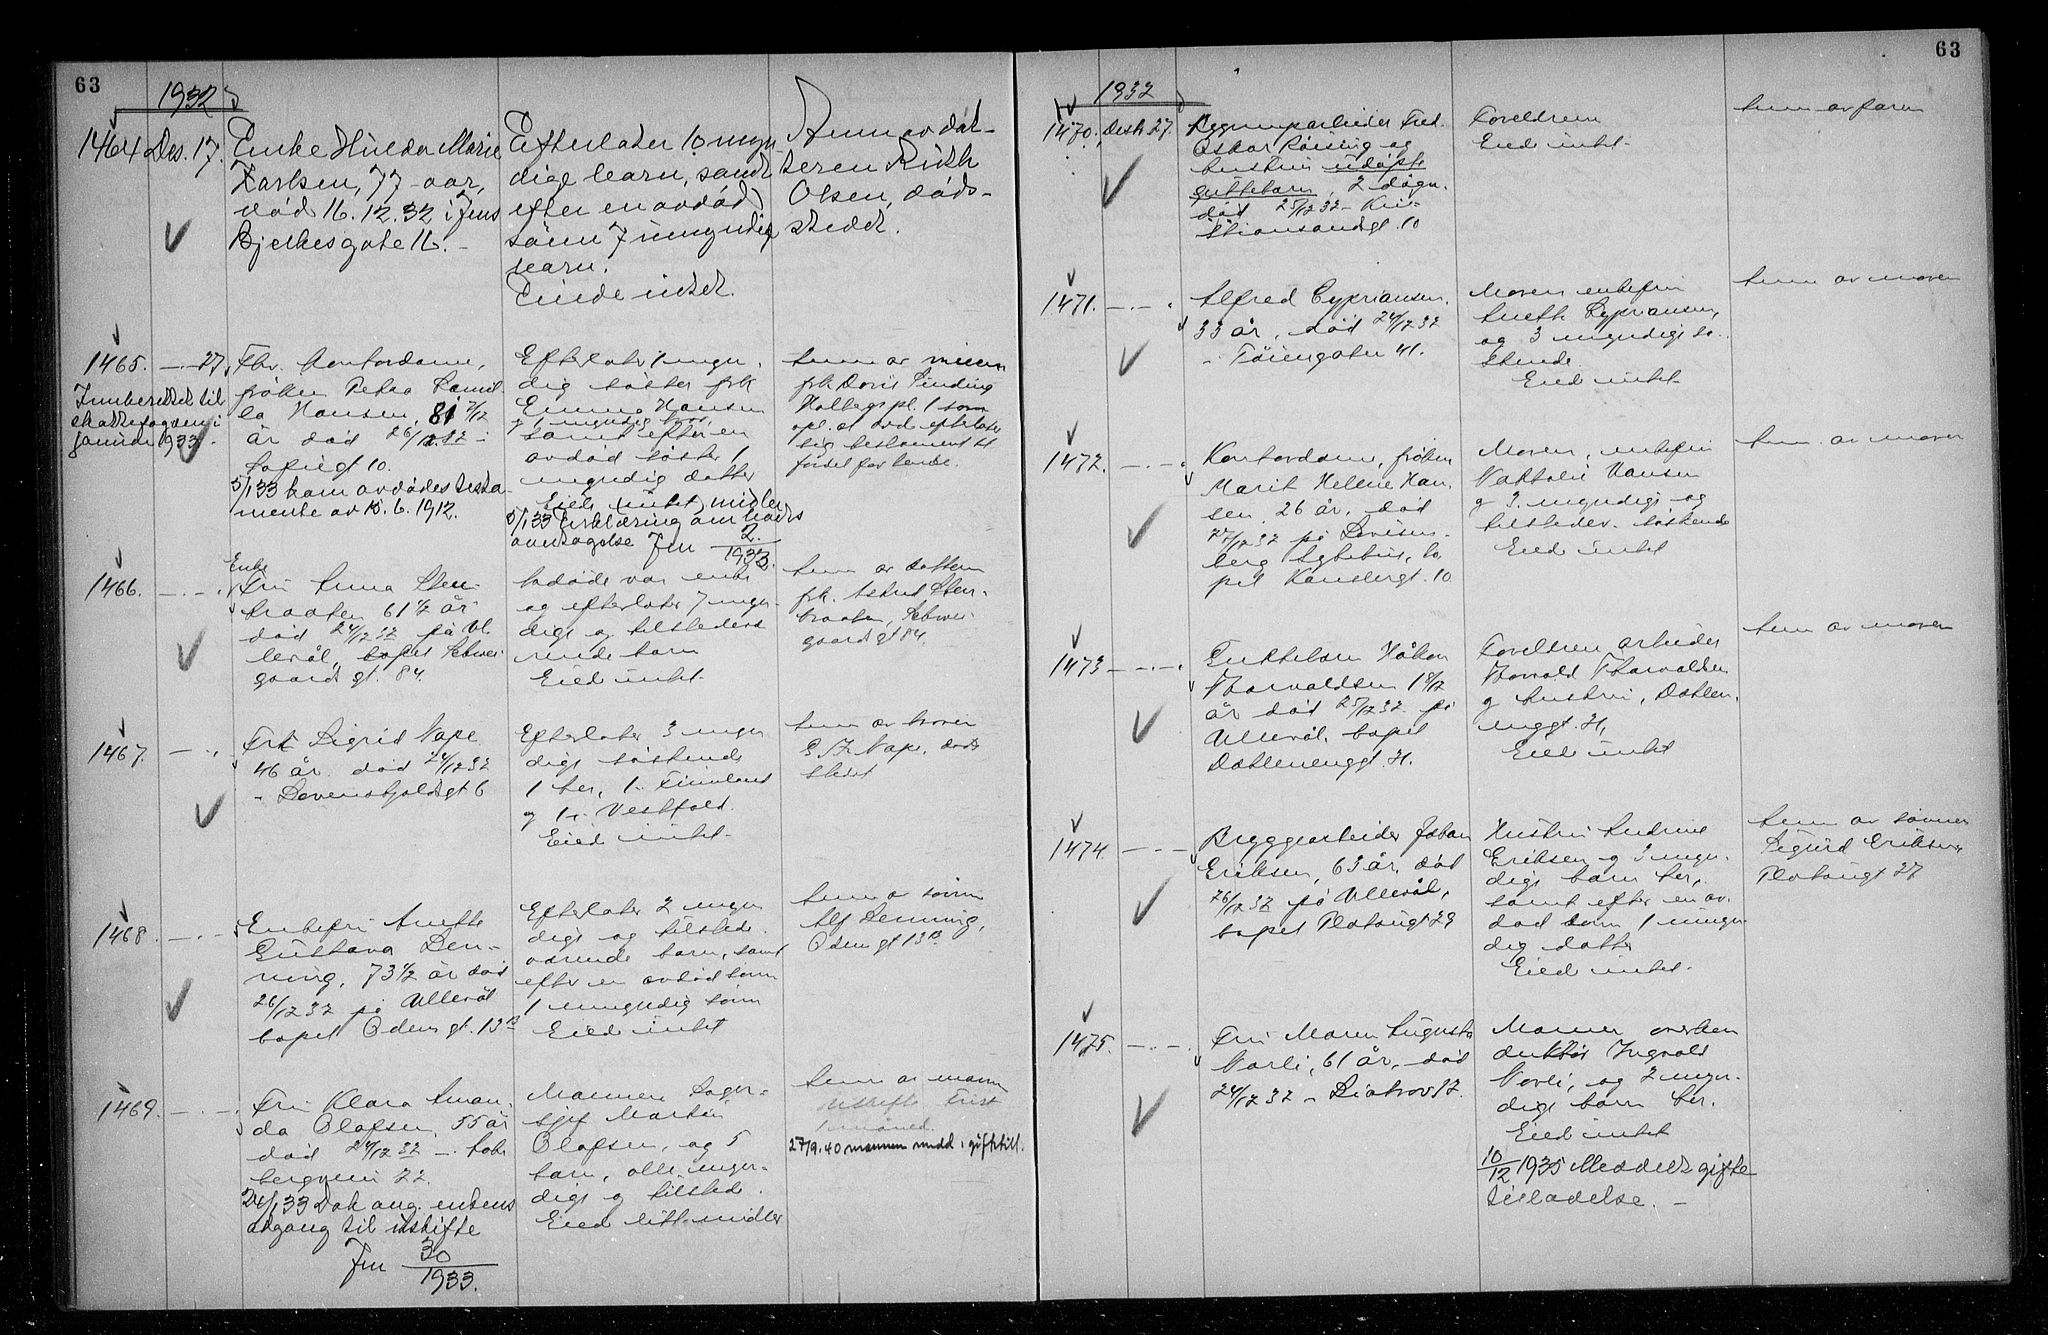 63
1932
1464 Des. 17.
Enke Hulda Marie
Karlsen, 77 aar,
død 16.12.32 i Jens
Bjelkesgate 16. -
Efterlater 10 myn-
dige barn, samt
efter en avdød
sønn 7 umyndige
barn.
Eiede intet.
Anm av dat-
teren Ruth
Olsen, døds-
stedet.
1465. — 27.
Innberettet til
skattefogden i
januar 1933.
Fhv. kontordame,
frøken Petra Camil-
la Hansen, 81 7/12
år død 26/12.32 i
Sofiegt 10.
5/1 33 kom avdødes testa-
mente av 15.6.1912.
Efterlater 1 myn-
dig søster frk
Emma Hansen
samt efter en
avdød søster 1
myndig datter
Eiede intet midler
5/1 33 Erklæring om
overtagelse Jnr 2/1933.
Anm av niesen
frk. Doris Sinding
Holbergs pl. 1 som
opl. at avd. efterlater
sig testament til
fordel for henne.
1466. — . — .
Enke
Fru Anna Sten-
braaten 61 1/2 år
død 24/12 32 på Ul-
levål, bopel Schwei-
gaards gt. 84.
Avdøde var enke
og efterlater 7 myn-
dige og tilstedevæ-
rende barn
Eied intet.
Anm av datteren
frk. Astrid Sten-
braaten, Schwei-
gaards gt 84
1467. — .
Frk Sigrid Nape
46 år død 24/12 32
- Løvenskjoldsgt 6
Efterlater 3 myn-
dige søskende
1 her, 1 i Finnland
og 1 i Vestfold.
Eied intet.
Anm av broren
Nape, døds-
stedet
1468. — . —
Enkefru Anette
Gustava Den-
ning, 73 1/2 år død
26/12 32 på Ullevål
bopel Odens gt. 13 B
Efterlater 2 myn-
dige og tilstede-
værende barn, samt
efter en avdød sønn
1 umyndig sønn
Eied intet
Anm av sønnen
Alf Denning,
Odens gt 13 B.
1469. — . —
Fru Klara Aman-
da Olafsen, 55 år
død 24/12 32 -
bergveien 22.
24/1 33 Dok ang. enkens
adgang til uskifte
Jnr 30/1933.
Mannen lager-
sjef Martin
Olafsen, og 5
barn, alle myn-
dige og tilstede.
Eied litt midler
Anm av mannen
Uskifte frist
1 måned.
27/9.40 mannen medd. giftetill.
63
1932
1470. Desb 27.
Bryggearbeider Fred.
Oskar Røising og
hustrus udøpte
guttebarn, 2 døgn.
død 25/12 32 - Kri-
stiansandsgt. 10
Foreldrene
Eied intet.
Anm av faren
1471. — . — .
Alfred Cyprianssen.
33 år, død 24/12 32
- Tøiengaten 41.
Moren enkefru
Anette Cyprianssen,
og 3 myndige sø-
skende
Eied intet.
Anm av moren
1472. — . — .
Kontordame, frøken
Marit Helene Han-
sen, 26 år, død
27/12 32 på Lovisen-
berg sykehus, bo-
pel Kanslergt. 10
Moren, enkefru
Nathalie Hansen
og 3 myndige og
tilstedev. søskende
Eied intet
Anm. av moren
1473 — . — .
Guttebarn Håkon
Thorvaldsen 1 8/12
år død 25/12 32 på
Ullevål, bopel
Dahlenenggt. 31.
Foreldrene arbeider
Thorvald Thorvaldsen
og hustru, Dahlen-
enggt. 31,
Eied intet
Anm av moren
1474. — . —
Bryggearbeider Johan
Eriksen, 63 år, død
26/12 32 på Ullevål,
bopel Platousgt 29
Hustru Andrine
Eriksen og 3 myn-
dige barn her,
samt efter en av-
død sønn 1 umyn-
dig datter
Eied intet.
Anm av sønnen
Sigurd Eriksen,
Platousgt 27
1475. — . — .
Fru Maren Augusta
Norli, 61 år, død
24/12 32 -
Mannen overkon-
duktør Ingvald
Norli, og 2 myn-
dige barn her.
Eied intet
10/12 1935 Meddelt gifte-
tilladelse. -